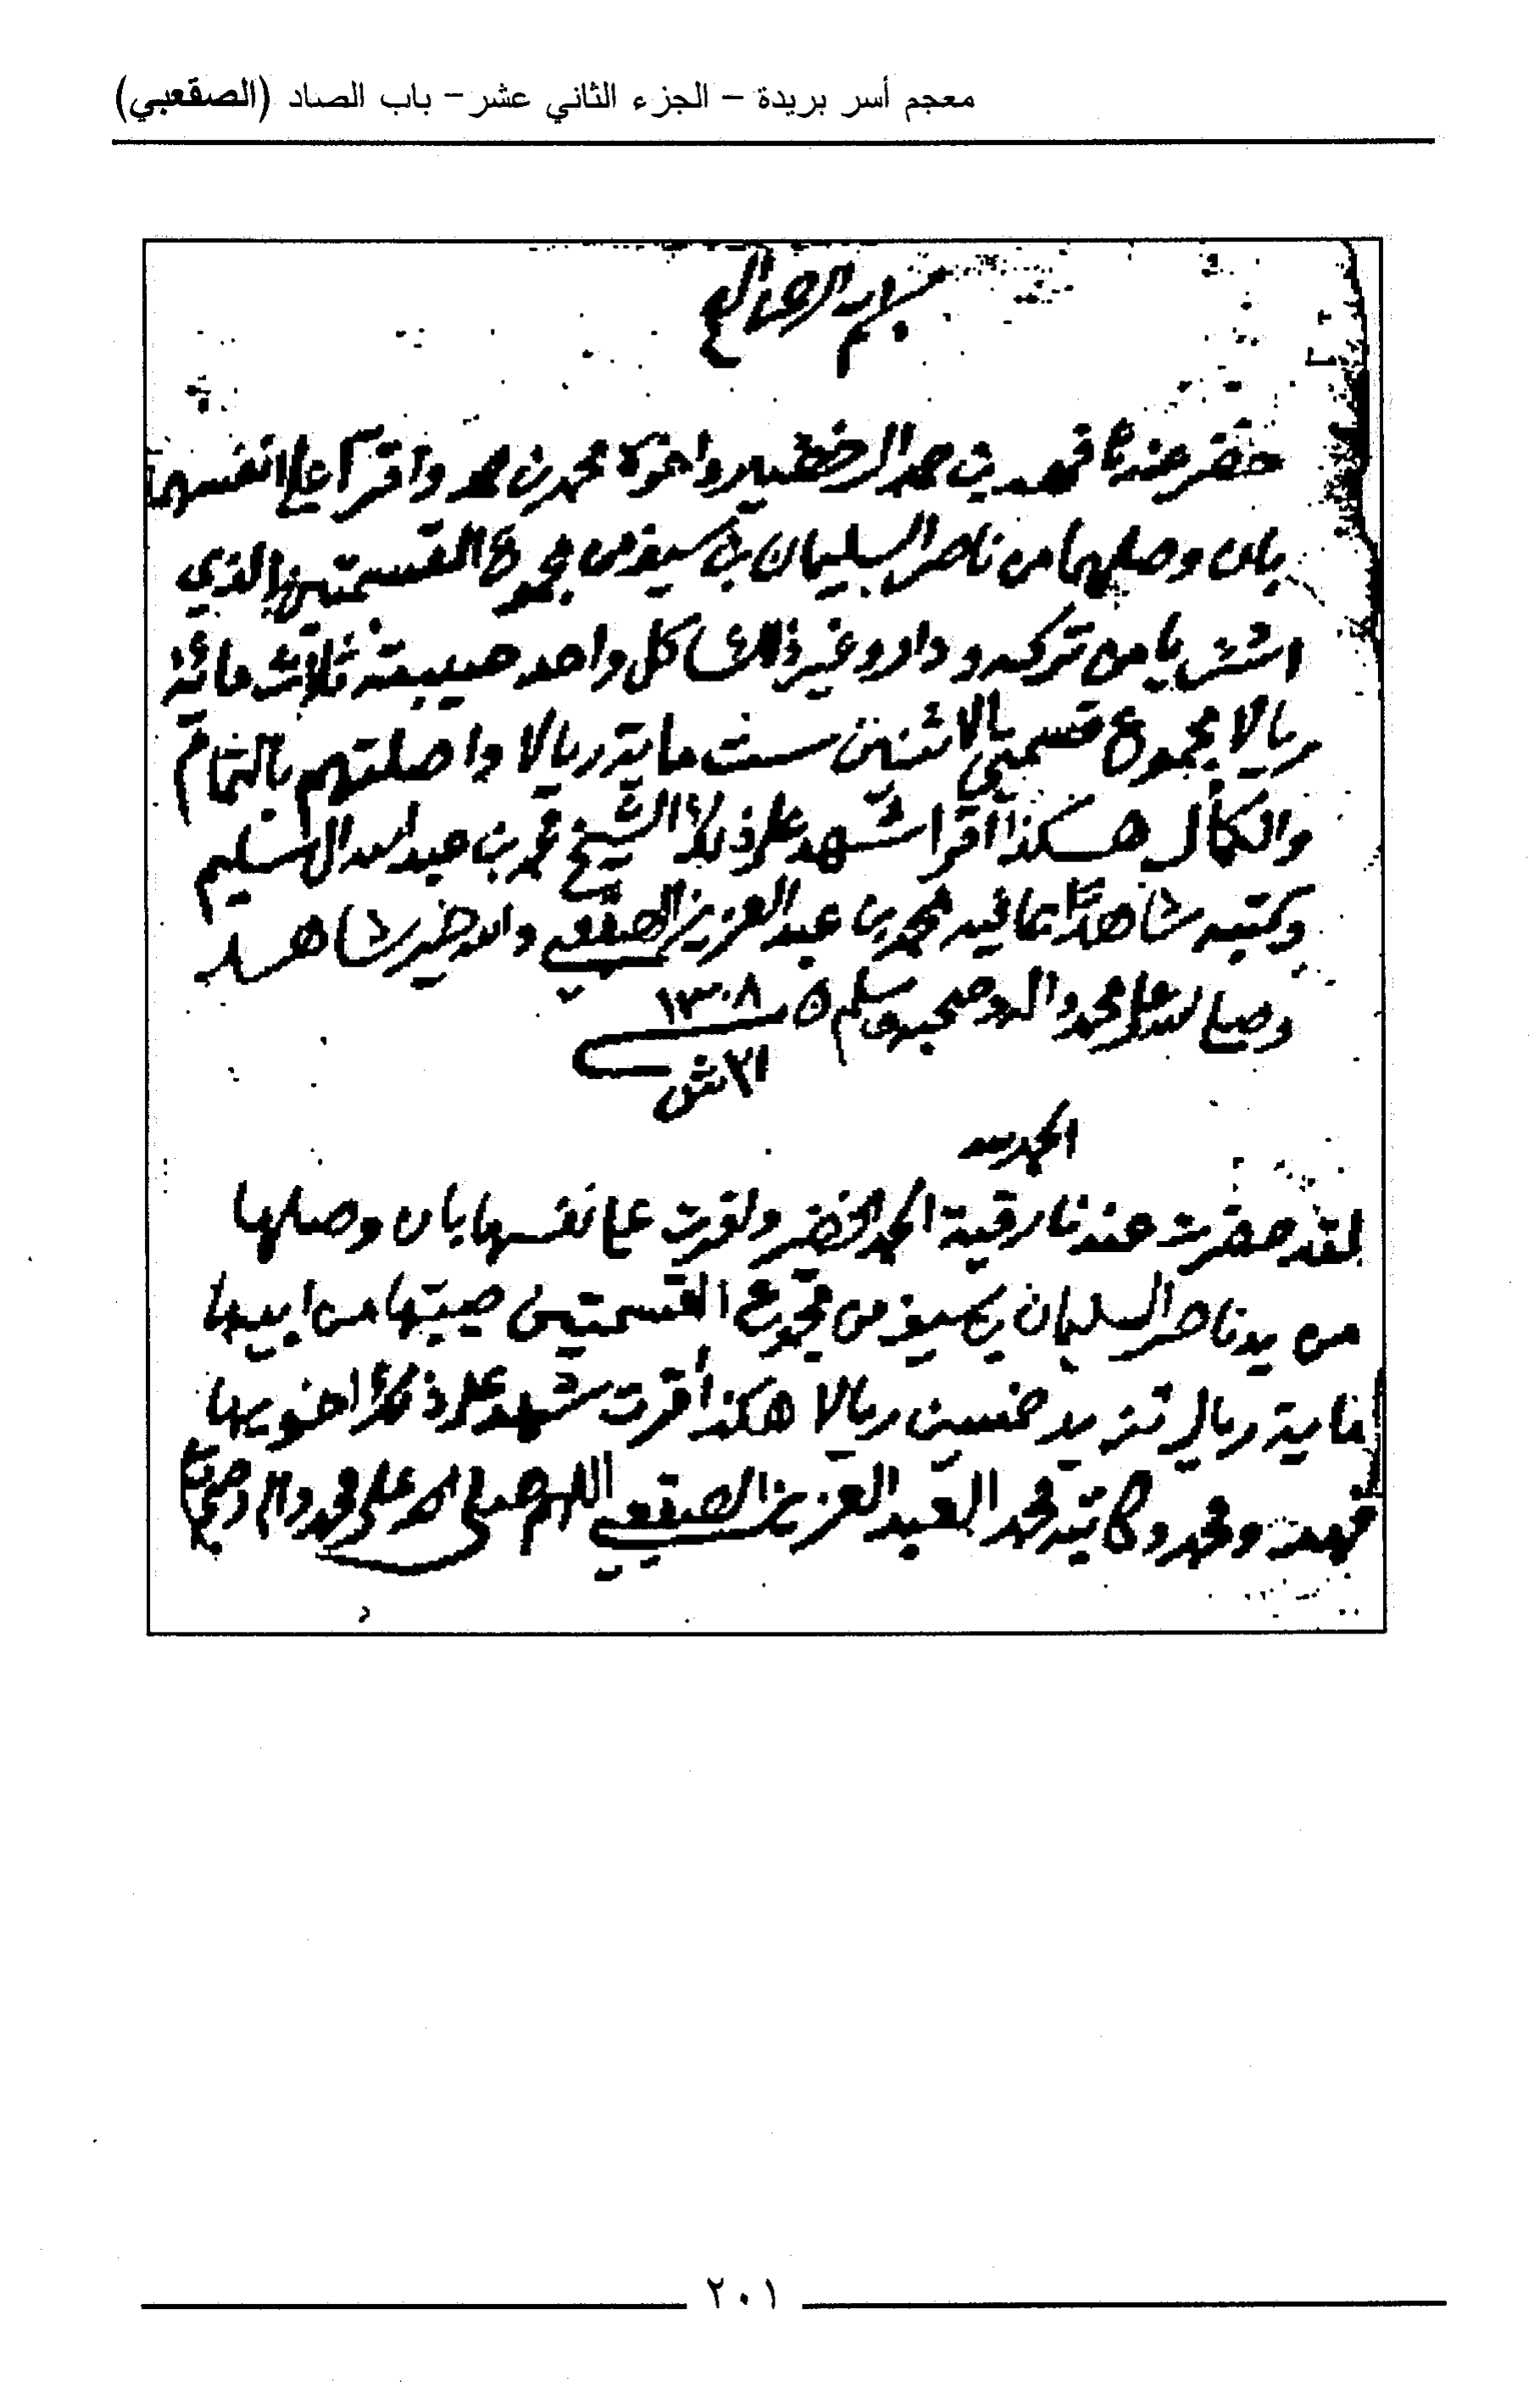 معجم أسر بريدة – الجزء الثاني عشر – باب الصاد (الصقعبي)
بسم الله الرحمن الرحيم
حضر عندنا فهد بن حمد الخضير واخوه محمد بن حمد واقرا على انفسهما
بان وصلهما من ناصر السليمان بن سيف من مجموع القسمتين الذي
اشتريا من تركه ودار وغير ذلك كل واحد صيبته ثلاث مائة
ريالا مجموع قسمتي بالاثنين ست ماية ريالا واصلتهم بالتمام
والكمال هكذا اقرا شهد على ذلك الشيخ محمد بن عبد الله ال سليم
وكتبه شاهدًا بما فيه محمد بن عبد العزيز الصقعبي والله خير شاهد
وصلى الله على محمد واله وصحبه وسلم ١٣٠٨
٢١ ش
الحمد لله
لقد حضرت عندنا رقية الحمد الخضير واقرت على نفسها بان وصلها
من يد ناصر السليمان بن سيف من مجموع القسمتين صيبتها من ابيها
ماية ريال تزيد خمسين ريالا هكذا أقرت شهد على ذلك اخويها
فهد ومحمد وكاتبه محمد العبد العزيز الصقعبي اللهم صلى على محمد واله وصحبه
٢٠١